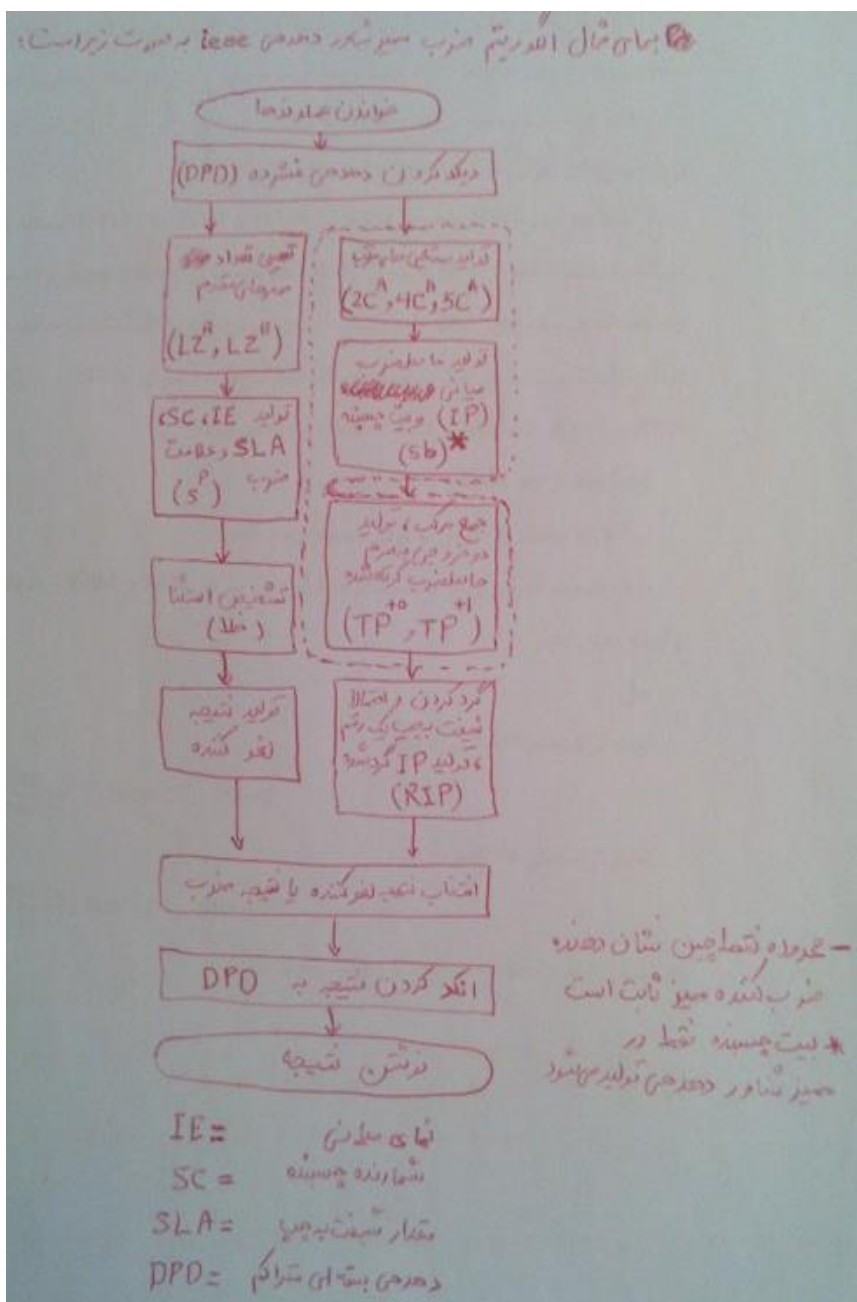 برای مثال الگوریتم ضرب ممیز شناور دهدهی ieee به صورت زیر است:
خواندن عملوندها
دیکد کردن دهدهی فشرده (DPD)
تعیین تعداد
صفرهای مقدم
(LZᴬ, LZᴮ)
تولید IE، SC،
SLA و علامت
ضرب
(sᴾ)
تشخیص استثنا
(خطا)
تولید نتیجه
لغو کننده
تولید مضرب
(2Cᴬ, 4Cᴬ, 5Cᴬ)
تولید حاصلضرب
میانی
(IP) و بیت چسبنده
(sb)*
جمع مرکب، تولید
دو خروجی
حاصلضرب گرد نشده
(TP⁺⁰, TP⁺¹)
گرد کردن و احتمالا
شیفت به چپ یک رقم
، تولید IP گرد شده
(RIP)
انتخاب نتیجه لغو کننده یا نتیجه ضرب
انکد کردن نتیجه به DPD
نوشتن نتیجه
- محدوده نقطه چین نشان دهنده
ضرب کننده ممیز ثابت است
* بیت چسبنده فقط در
ممیز شناور دهدهی تولید می شود
IE = نمای میانی
SC = شمارنده چسبنده
SLA = مقدار شیفت به چپ
DPD = دهدهی بسته ای متراکم